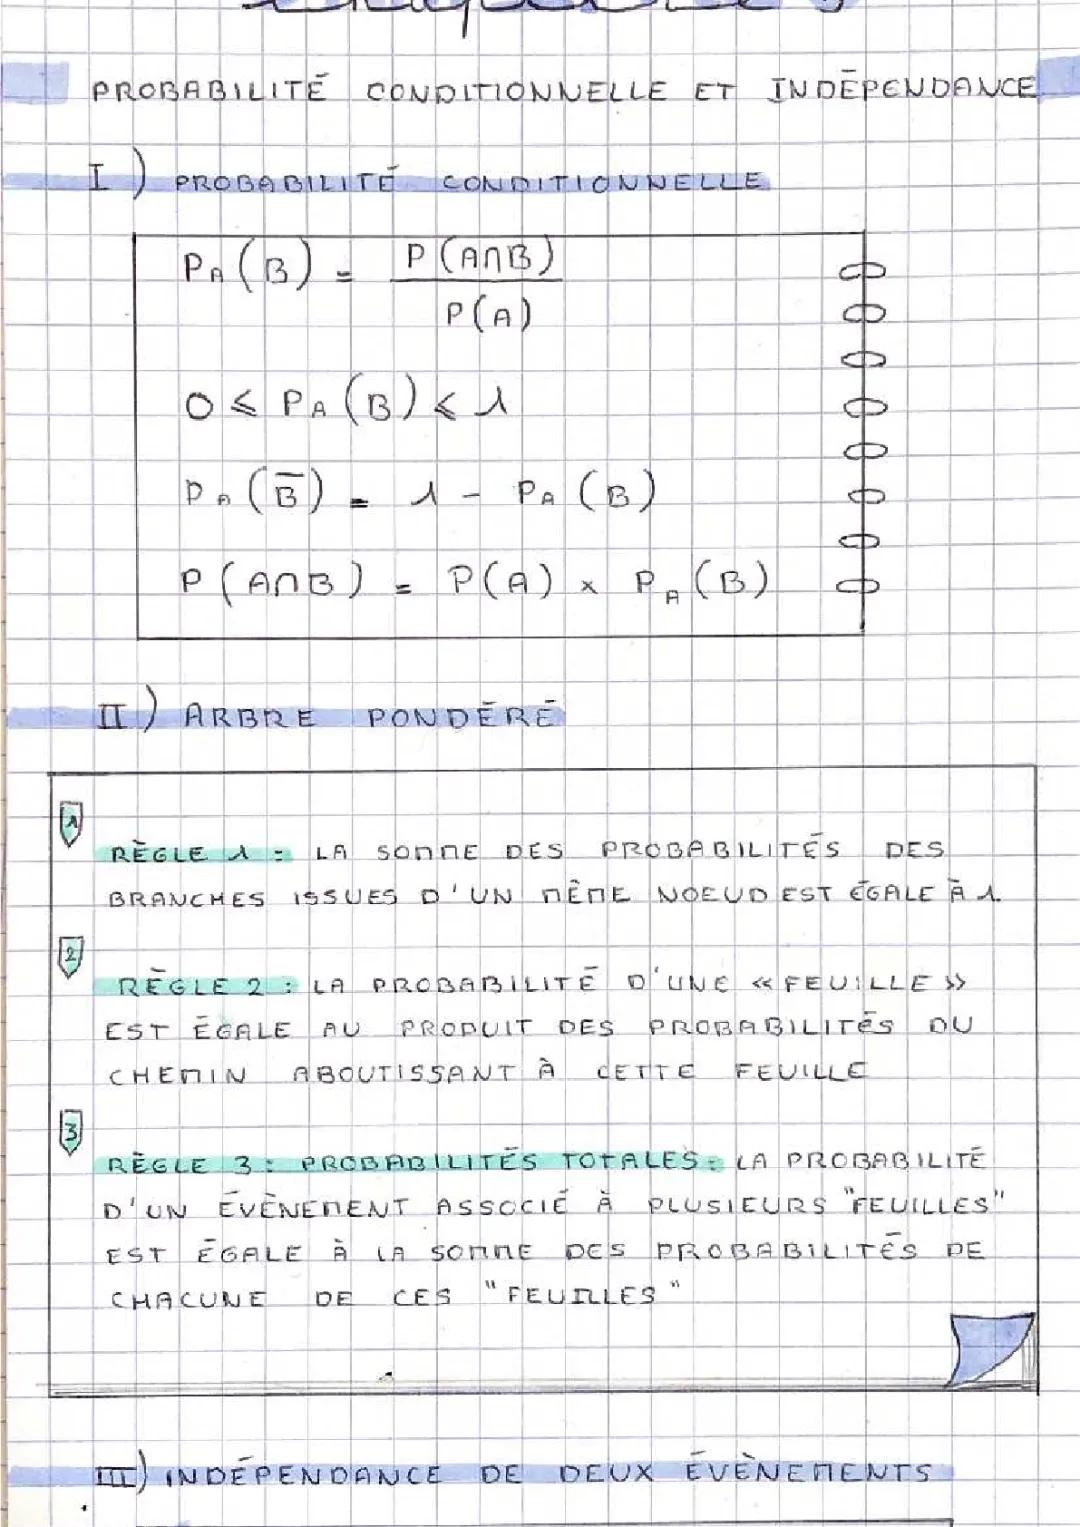 PROBABILITÉ CONDITIONNELLE ET INDÉPENDANCE
I) PROBABILITÉ CONDITIONNELLE
PA(B) = P(A∩B) / P(A)
0 ≤ PA(B) ≤ 1
PA(B̅) = 1 - PA(B)
P(A∩B) = P(A) × PA(B)
II) ARBRE PONDÉRÉ
1
RÈGLE 1 : LA SOMME DES PROBABILITÉS DES
BRANCHES ISSUES D'UN MÊME NOEUD EST ÉGALE À 1.
2
RÈGLE 2 : LA PROBABILITÉ D'UNE « FEUILLE »
EST ÉGALE AU PRODUIT DES PROBABILITÉS DU
CHEMIN ABOUTISSANT À CETTE FEUILLE
3
RÈGLE 3 : PROBABILITÉS TOTALES : LA PROBABILITÉ
D'UN ÉVÈNEMENT ASSOCIÉ À PLUSIEURS "FEUILLES"
EST ÉGALE À LA SOMME DES PROBABILITÉS DE
CHACUNE DE CES "FEUILLES"
III) INDÉPENDANCE DE DEUX ÉVÈNEMENTS